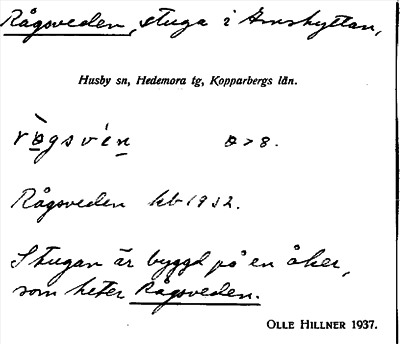 Rågsveden, stuga i Amshyttan,
Husby sn, Hedemora tg, Kopparbergs län.
Rågsveden kb 1932.
Stugan är byggd på en åker,
som heter Rågsveden.
OLLE HILLNER 1937.